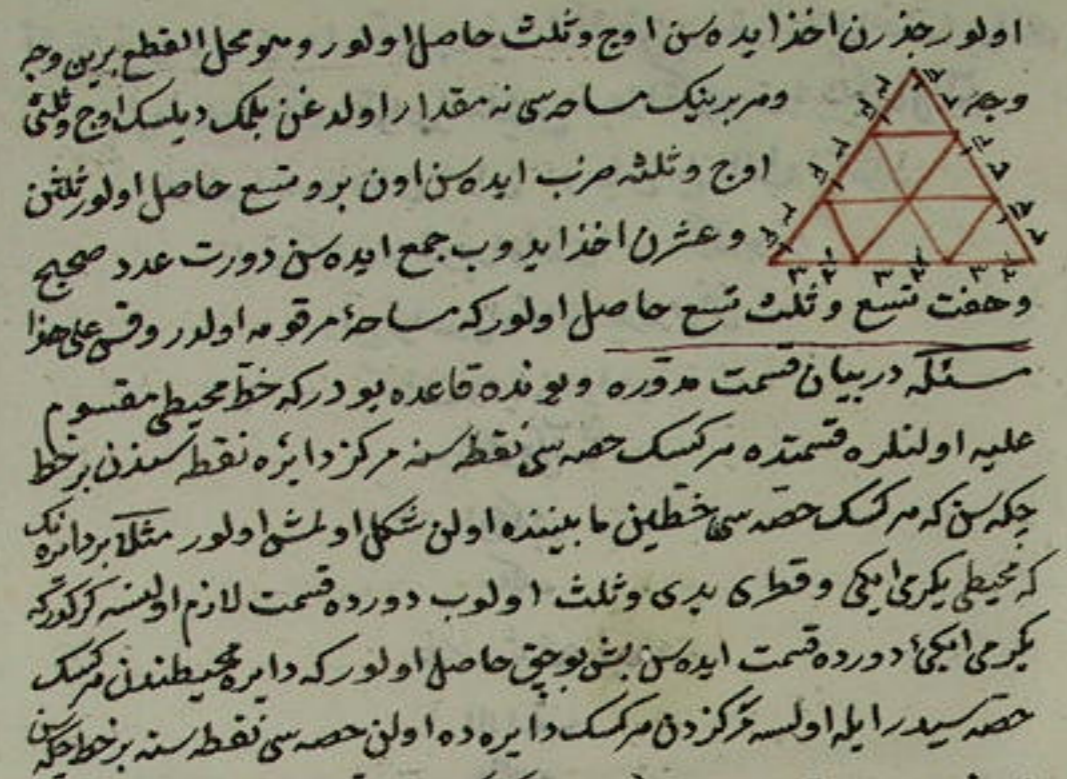 اولور جذرن اخذ ایده سن اوج و ثلث حاصل اولور و هو محل القطع بریی وجه
و هر برینک مساحه سی نه مقدار اولدغن بلمک دیلسک اوج و ثلثی
اوج و ثلثه ضرب ایده سن اون بر و تسع حاصل اولور ثلثن
و عشرن اخذ ایدوب جمع ایده سن دورت عدد صحیح
و هفت تسع و ثلث تسع حاصل اولور که مساحهٔ مرقومه اولدر وقس علی هذا
مسئله در بیان قسمت مدوره و بونده قاعده بودر که خط محیطی مقسوم
علیه اولنلره قسمتده هر کسک حصه سی نقطه سنه مرکز دایره نقطه سندن بر خط
چکه سن که هر کسک حصه سی خطین ما بیننده اولن شکل اولمش اولور مثلا بر دایره نک
که محیطی یکرمی ایکی و قطری یدی و ثلث اولوب دورده قسمت لازم اولنسه کرکدر که
یکرمی ایکیئ دورده قسمت ایده سن بش بوچق حاصل اولور که دایره محیطندن هر کسک
حصه سیدر ایله اولسه مرکزدن هر کسک دایره ده اولن حصه سی نقطه سنه بر خط چکه سن